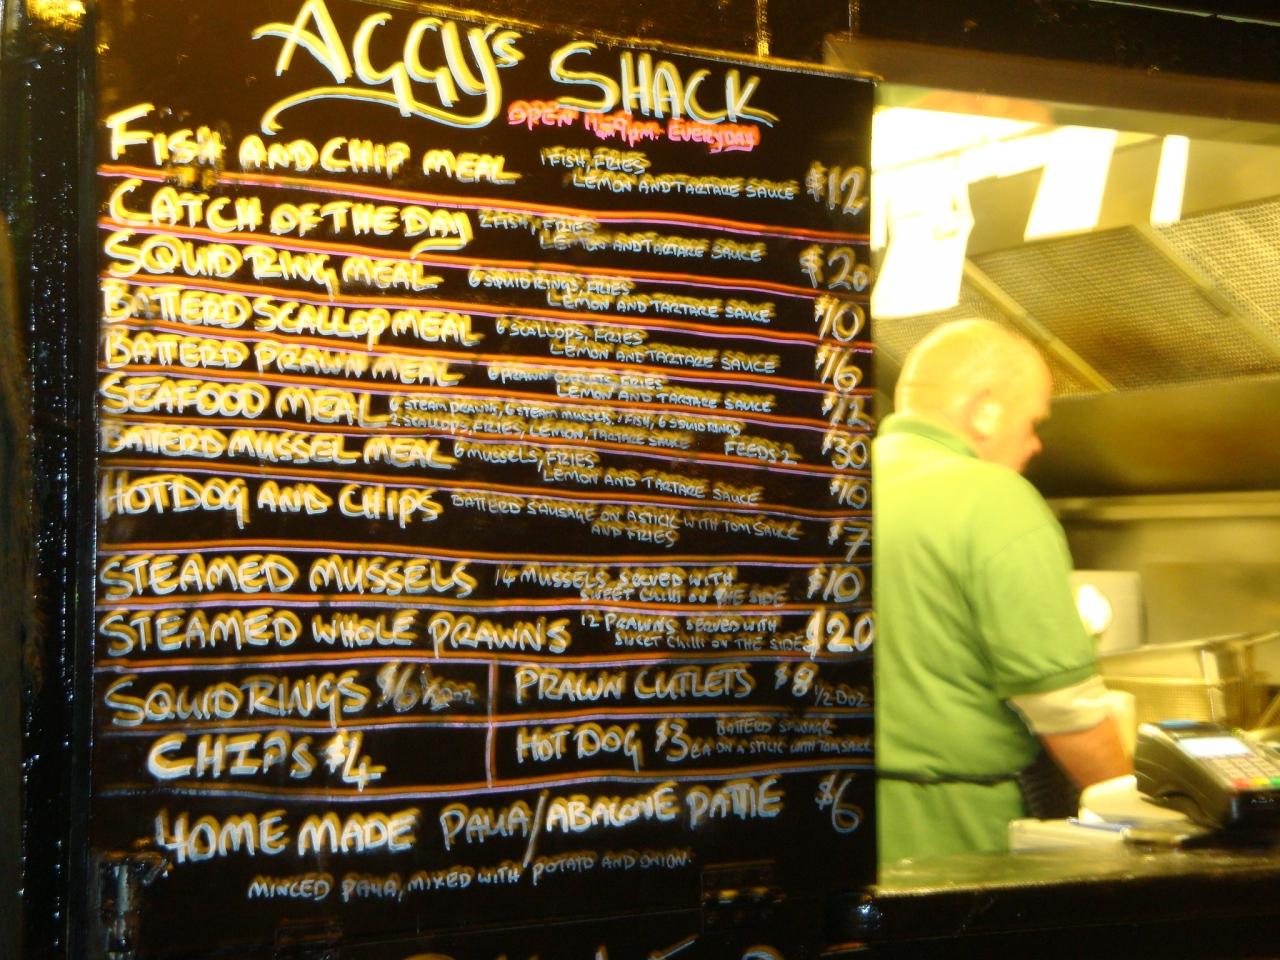 AGGY's SHACK
OPEN 11-9pm EVERYDAY
FISH AND CHIP MEAL 1 FISH, FRIES $12
LEMON AND TARTARE SAUCE
CATCH OF THE DAY 2 FISH, FRIES $20
LEMON AND TARTARE SAUCE
SQUID RING MEAL 6 SQUID RINGS, FRIES $10
LEMON AND TARTARE SAUCE
BATTERD SCALLOP MEAL 6 SCALLOPS, FRIES $16
LEMON AND TARTARE SAUCE
BATTERD PRAWN MEAL 6 PRAWN CUTLETS, FRIES $12
LEMON AND TARTARE SAUCE
SEAFOOD MEAL 6 STEAM PRAWNS, 6 STEAM MUSSELS, 1 FISH, 6 SQUID RINGS $30
2 SCALLOPS, FRIES, LEMON, TARTARE SAUCE FEEDS 2
BATTERD MUSSEL MEAL 6 MUSSELS, FRIES $10
LEMON AND TARTARE SAUCE
HOTDOG AND CHIPS BATTERD SAUSAGE ON A STICK WITH TOM SAUCE $7
AND FRIES
STEAMED MUSSELS 14 MUSSELS SERVED WITH $10
SWEET CHILLI ON THE SIDE
STEAMED WHOLE PRAWNS 12 PRAWNS SERVED WITH $20
SWEET CHILLI ON THE SIDE
SQUID RINGS $6 1/2 DOZ
PRAWN CUTLETS $8 1/2 DOZ
CHIPS $4
HOT DOG $3 EA BATTERD SAUSAGE
ON A STICK WITH TOM SAUCE
HOME MADE PAUA/ABALONE PATTIE $6
MINCED PAUA, MIXED WITH POTATO AND ONION.